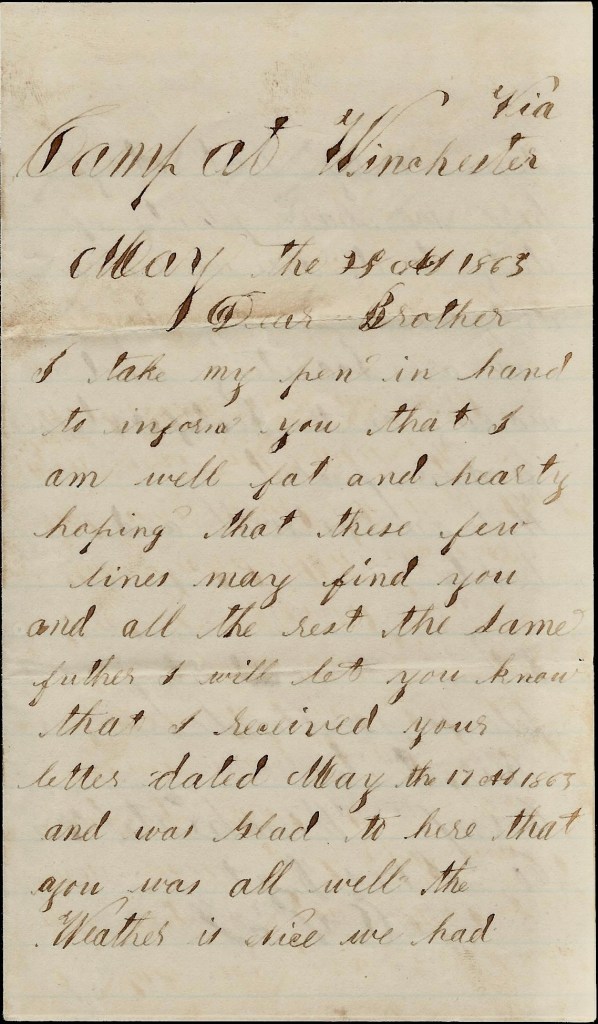 Via
Camp at Winchester
May the 1863
Dear Brother
I take my pen in hand
to inform you that I
am well fat and hearty
hoping that these few
lines may find you
and all the rest the same
futher I will let you know
that I received your
letter dated May the 17 1863
and was glad to here that
you was all well the
Weather is nice we had